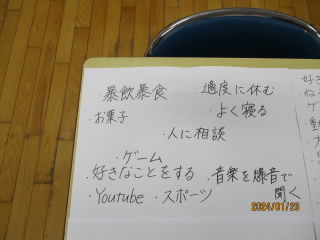 暴飲暴食
・適度に休む
・お菓子
・よく寝る
・人に相談
・ゲーム
好きなことをする
・音楽を爆音で
聞く
・Youtube
・スポーツ
2024/01/23